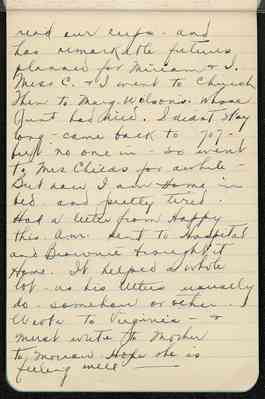 read our cups - and
has remarkable futures
planned for Miriam & I.
Miss C. & I went to Church
Then to Marg. Wolson's whose
Aunt had died. I didn't stay
long - came back to 707 -
but no one in - so went
to Mrs Childs for awhile -
But now I am home in
bed and pretty tired.
Had a letter from Happy
this a.m. sent to Hospital
and Brownie brought it
Home. It helped a whole
lot - as his letters usually
do - somehow or other. I
Wrote to Virginia - &
must write to Mother
to morrow Hope she is
feeling well